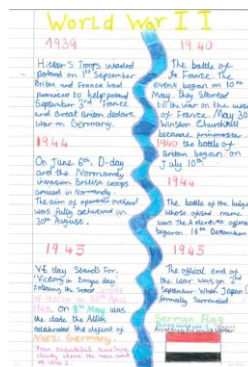 World War II
1939
Hitler's Troops wanted
Poland on 1st September
Britain and France had
promised to help poland
September 3rd France
and Great Britain declare
war on Germany.
1944
On June 6th, D-day
and the Normandy
invasion British troops
arrived in Normandy.
The aim of operation overlord
was fully achieved on
30th August.
1945
V.E day Stands For,
'Victory in Europe day
Following the
of Hitler on 30th April
on 8th May was
the date the Allies
celebrated the defeat of
Nazi Germany.
1940
The battle of
France. The
event began on 10th
May. they started
to the war on the
of France. May 30
Winston Churchill
became primeminister
1940 the battle of
Britain began on
July 10th
1944
The battle of the bulge
whose offical name
was the Ardennes offensive
began 16th December
1945
The offical end of
the war was on 2nd
September when Japan
formally surrendered.
German Flag